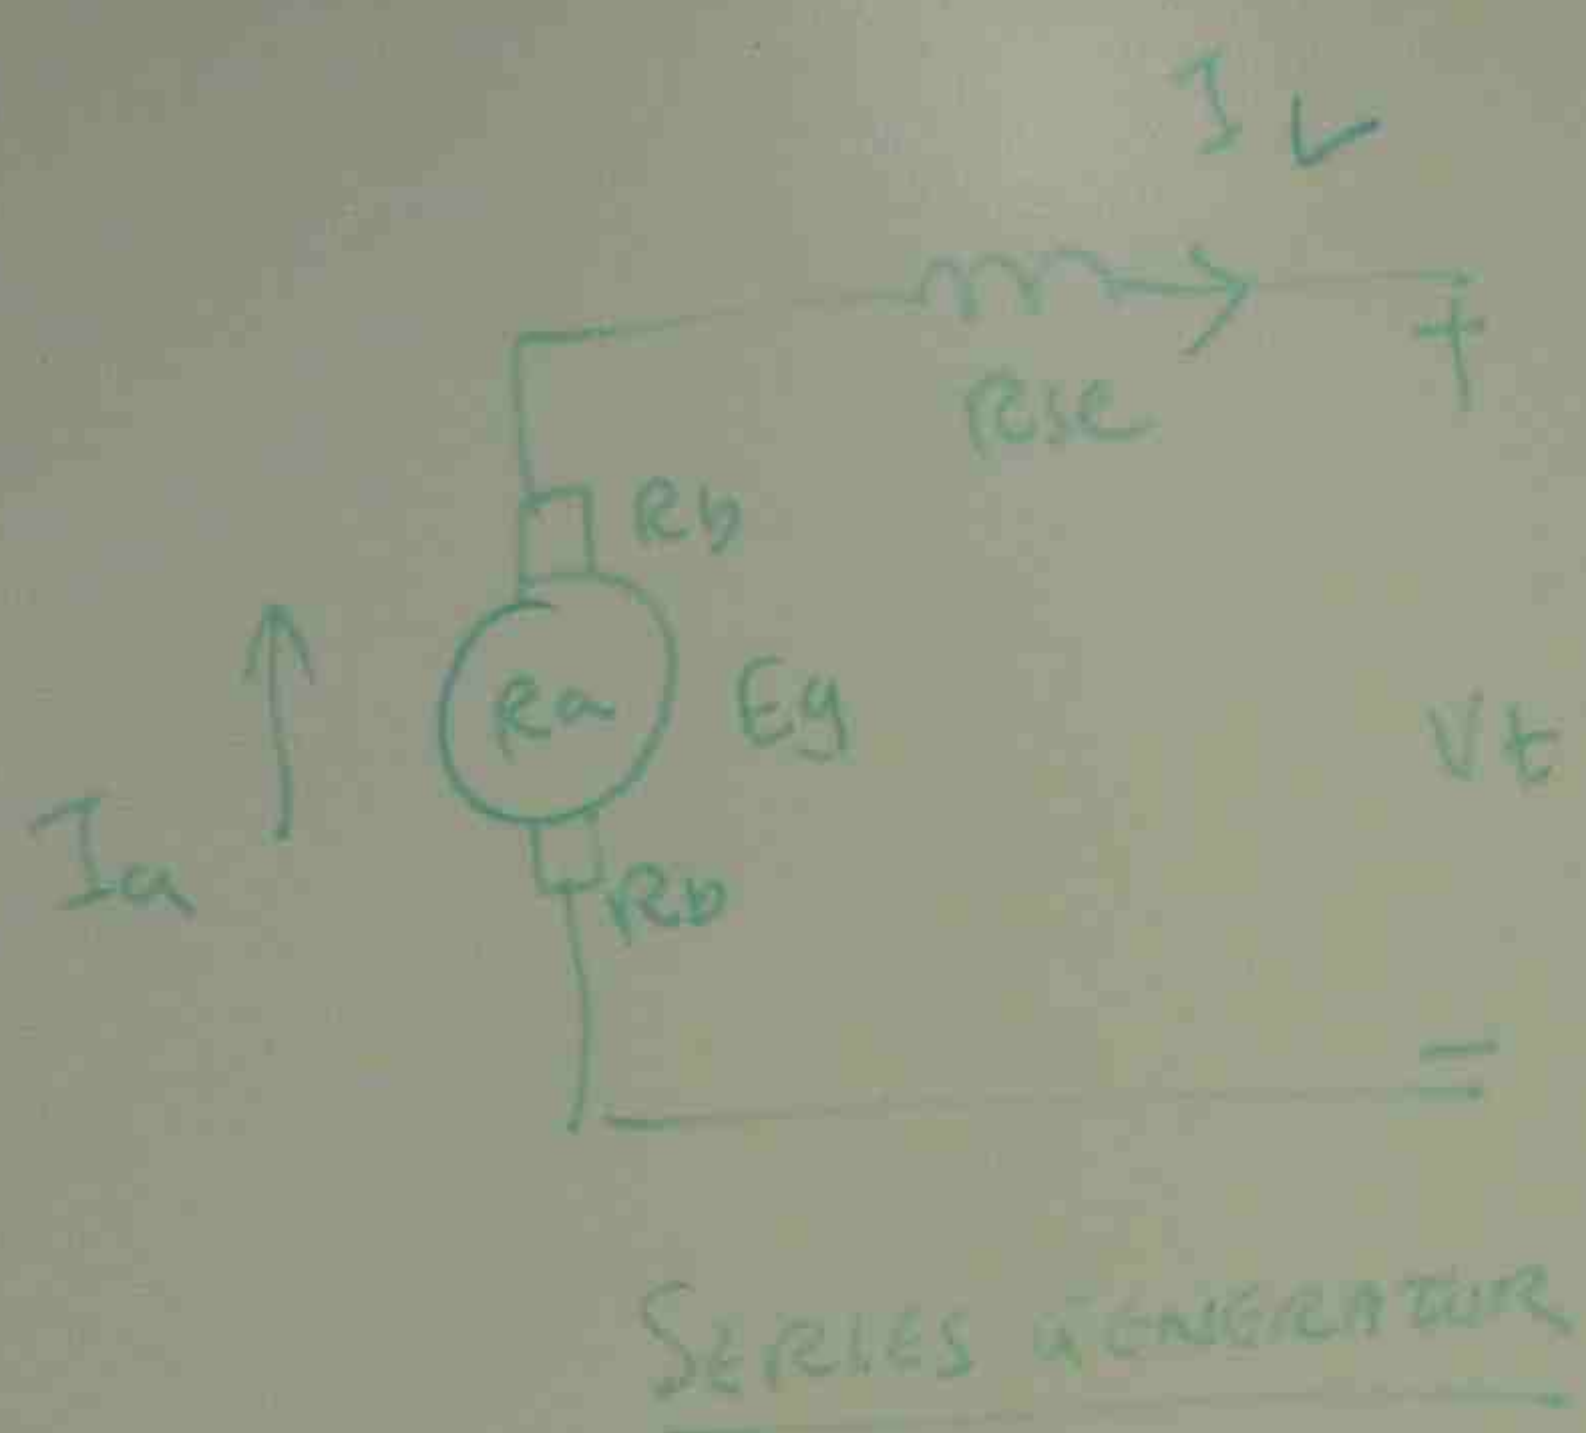 IL
+
Rse
Rb
Ra
Eg
Vt
Ia
Rb
-
SERIES GENERATOR